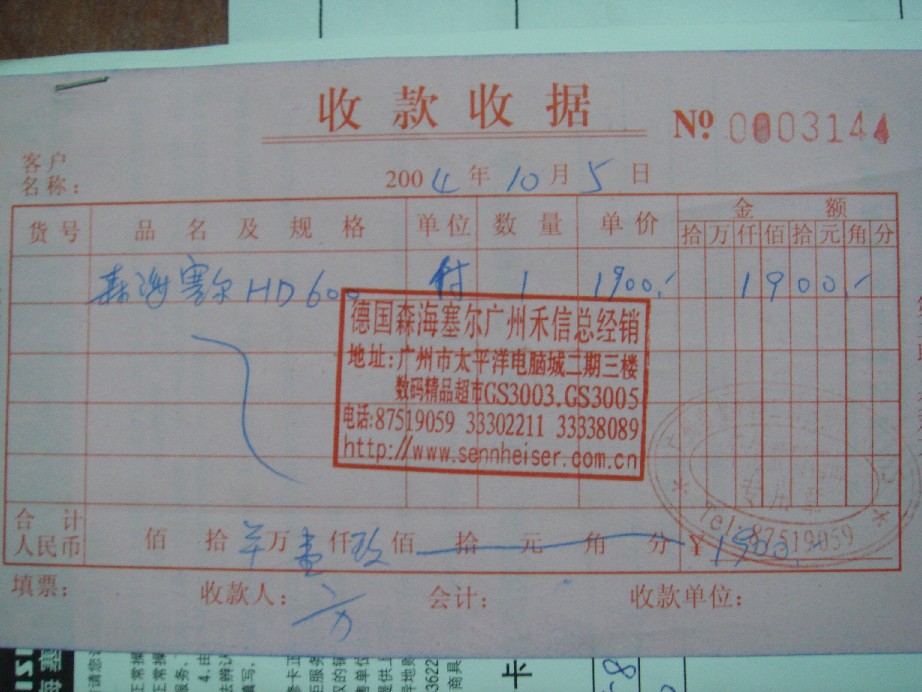 收款收据
Nº 0003144
客户
名称：
2004年10月5日
货号 品名及规格 单位 数量 单价 金额
拾万仟佰拾元角分
森海塞尔HD600 付 1 1900.- 1900.-
德国森海塞尔广州禾信总经销
地址:广州市太平洋电脑城二期三楼
数码精品超市GS3003.GS3005
电话:87519059 33302211 33338089
http://www.sennheiser.com.cn
Tel:87519059
合计
人民币 佰 拾 万壹仟玖佰 拾 元 角 分 ¥1900.-
填票： 收款人：方 会计： 收款单位：
卡